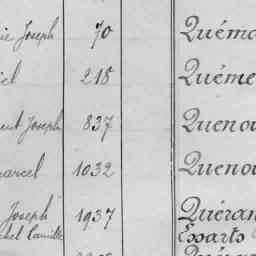 ie Joseph 70 Quéma
iel 218 Quéme
ent Joseph 837 Quenou
arcel 1032 Quenou
Joseph 1937 Quéran
chel Camille Essarts